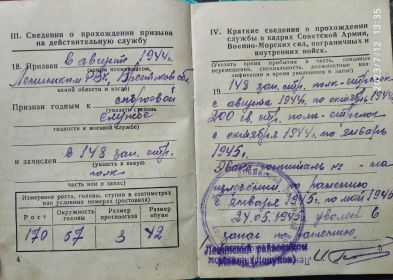 III. Сведения о прохождении призыва
на действительную службу
18. Призван 6 августа 1944г.
Ленинским РВК Брестской обл.
какой области и когда)
Признан годным к строевой
службе
годности к военной службе)
и зачислен в 148 зап. стр.
(указать в какую
полк
часть или в запас)
Измерения роста, головы, ступни в сантиметрах
или условных номерах (ростовка)
Рост
Окружность головы
Размер противогаза
Размер обуви
170
57
3
42
4
IV. Краткие сведения о прохождении
службы в кадрах Советской Армии,
Военно-Морских сил, пограничных и
внутренних войск.
(Указать время прибытия в часть, основные
перемещения,
лификации и время увольнения в запас)
19 148 зап. стр. полк - стрелок
с августа 1944г. по октябрь 1944г.
200 гв. стр. полк - стрелок
с октября 1944г. по январь
1945г.
госпиталь № - на
излечении по ранению
с января 1945г. по май 1945г.
24.05.1945г. уволен в
запас по ранению.
5
2023/7/12 13:35